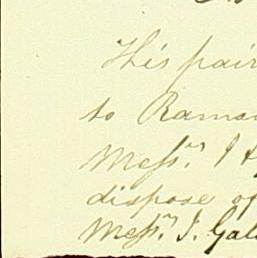 This pair
to Ramsa
Messrs. J &
dispose of
Messrs. J. Gal